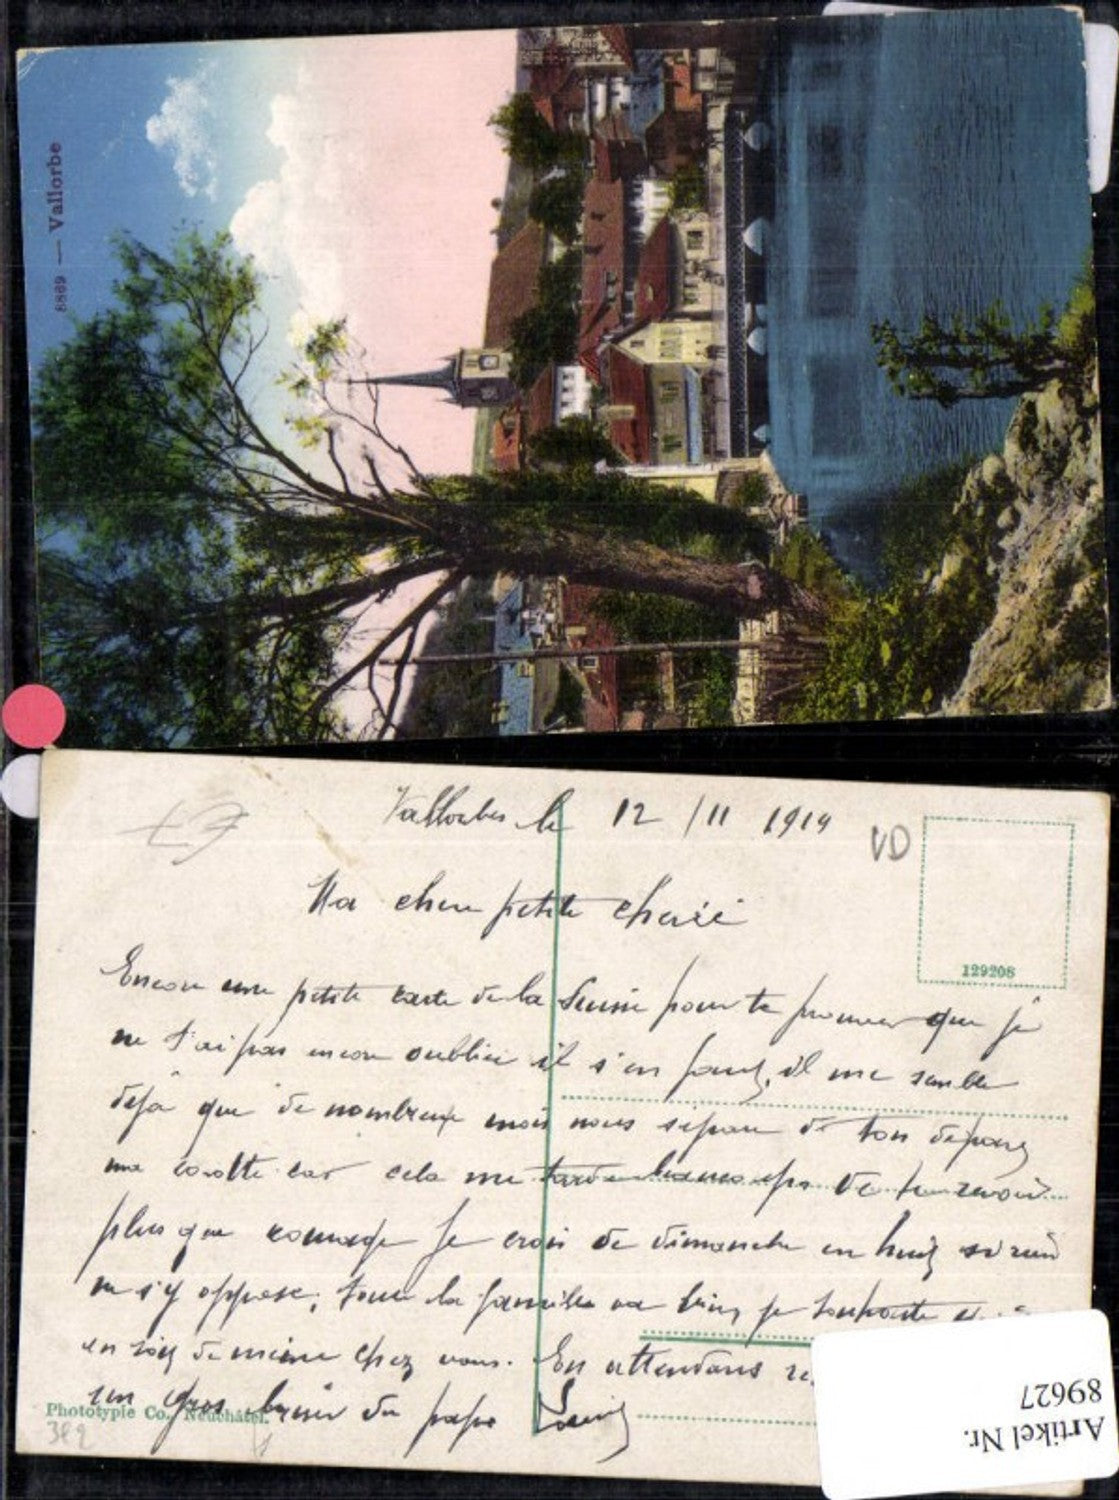 8869 — Vallorbe
Vallorbes le 12/11 1919
VD
Ma chere petite cherie
129208
Encore une petite carte de la Suisse pour te prouver que je
ne t'ai pas encore oublier il s'en faut, il me semble
déjà que de nombreux mois nous sépare de ton départ
ma cocotte car cela me tarde beaucoup de te revoir
plus que courage je crois de dimanche en huit si rien
ne s'y oppose, toute la famille va bien je souhaite
en soit de même chez vous. En attendans
un gros baiser du papa Louis
Phototypie Co., Neuchâtel.
382
Artikel Nr.
89627